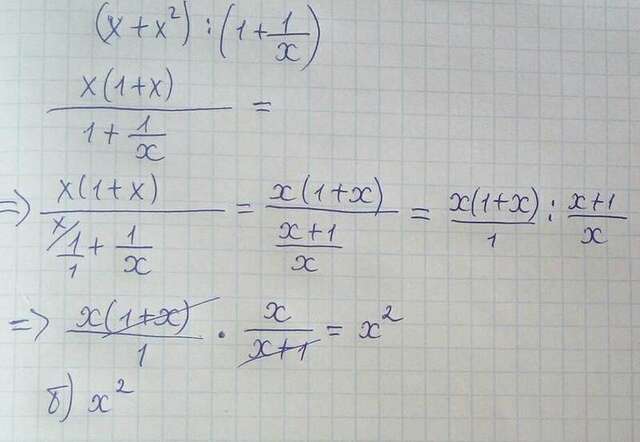 (x + x²) : (1 + 1/x)
x(1+x) / (1 + 1/x) =
⇒ x(1+x) / (ˣ/1/1 + 1/x) = x(1+x) / ((x+1)/x) = x(1+x)/1 : (x+1)/x
⇒ x(1+x)/1 · x/(x+1) = x²
б) x²